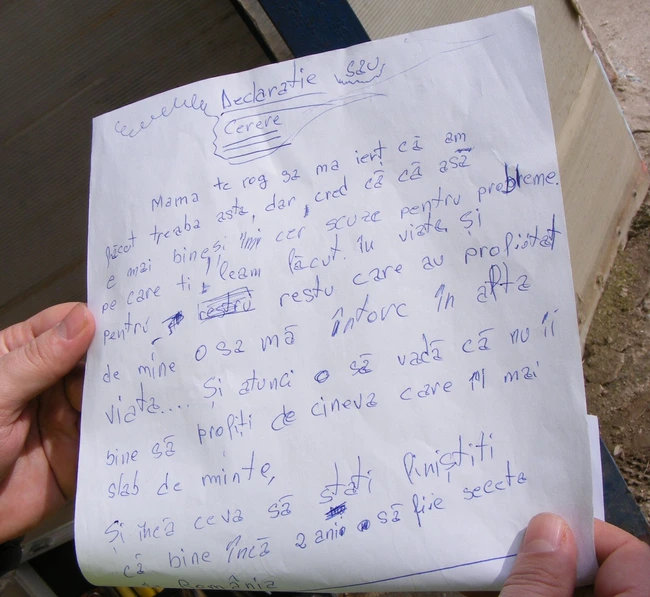 Declaratie sau
Cerere
Mama te rog sa ma ierț că am
făcut treaba asta, dar, cred că că asă
e mai bine, și îmi cer scuze pentru probleme.
pe care ti leam făcut. în viata, și
pentru restu care au profitat
de mine o sa mă întorc în alta
viata.... Și atunci o să vadă că nu îi
bine să profiți de cineva care îi mai
slab de minte,
Și încă ceva să stati liniștiti
că bine încă 2 ani o să fie seceta
în România